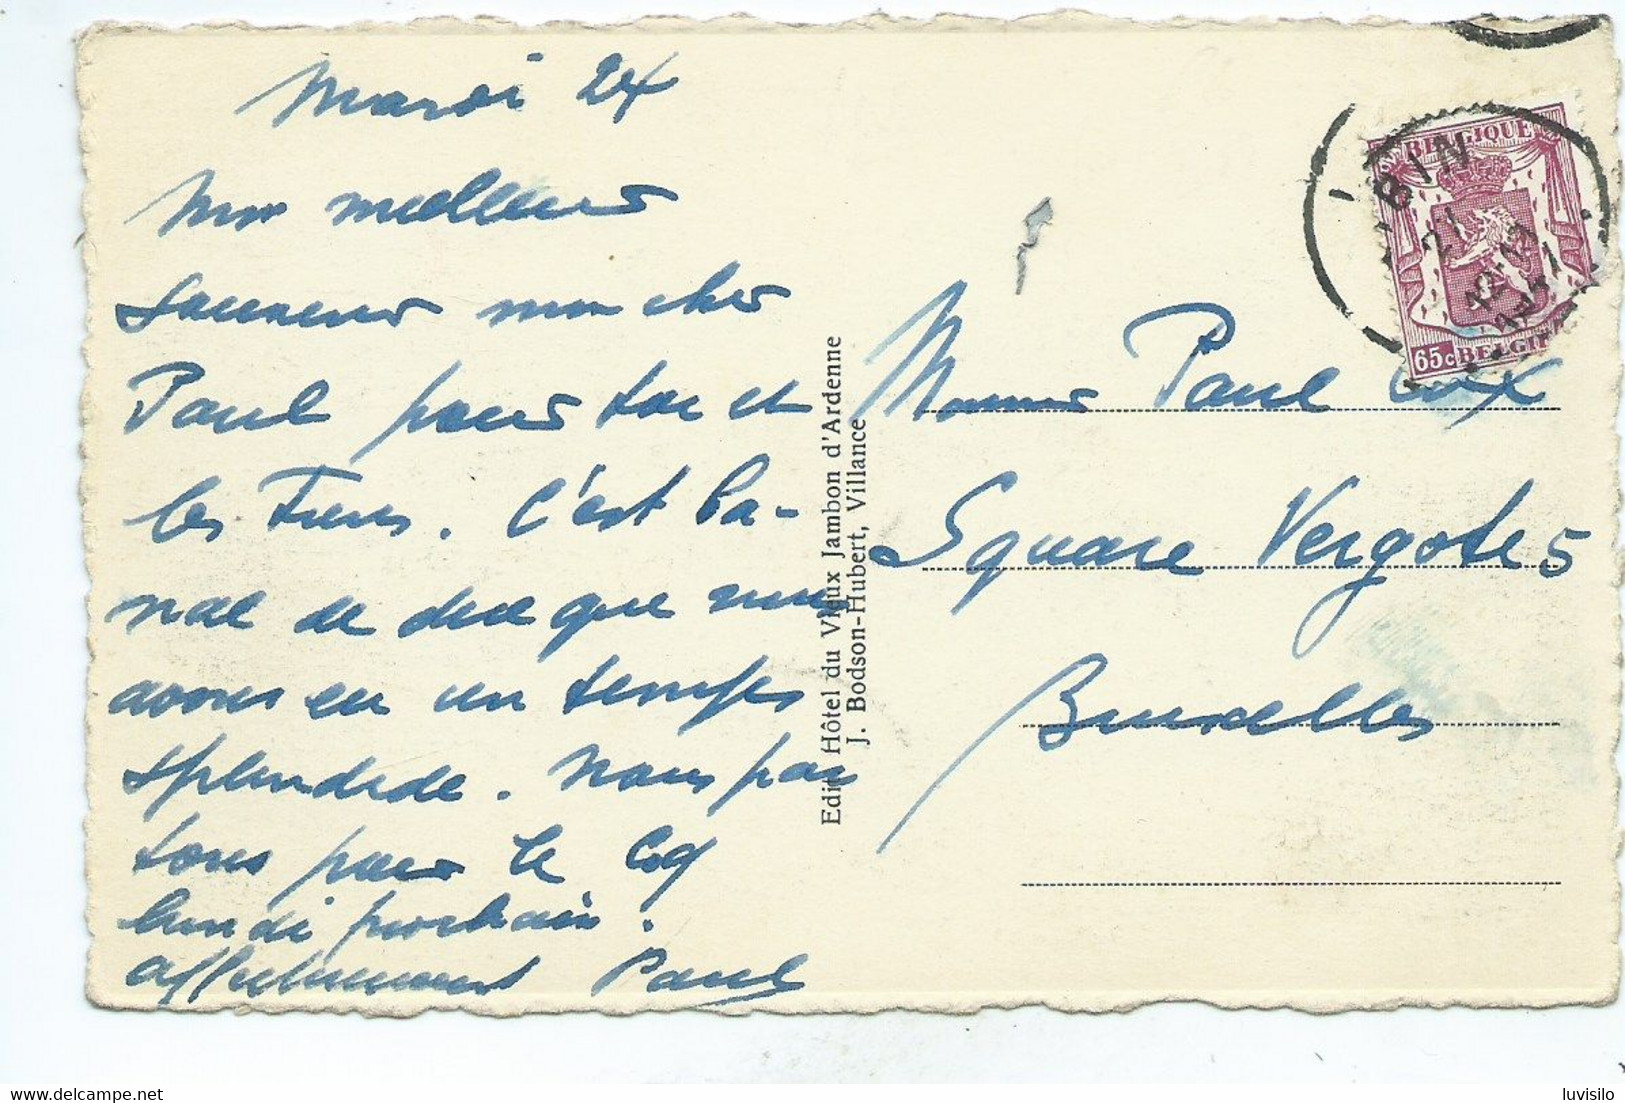 Mardi 24
Mon meilleur
souvenir mon cher
Paul pour toi et
les Tiens. C'est ba-
nal de dire que nous
avons eu un temps
splendide. Nous par
tons pour le Coq
lundi prochain.
affectueusement Paul
Edit. Hôtel du Vieux Jambon d'Ardenne
J. Bodson-Hubert, Villance
BELGIQUE
65c BELGIE
BIN
Monsieur Paul
Square Vergote 5
Bruxelles
luvisilo